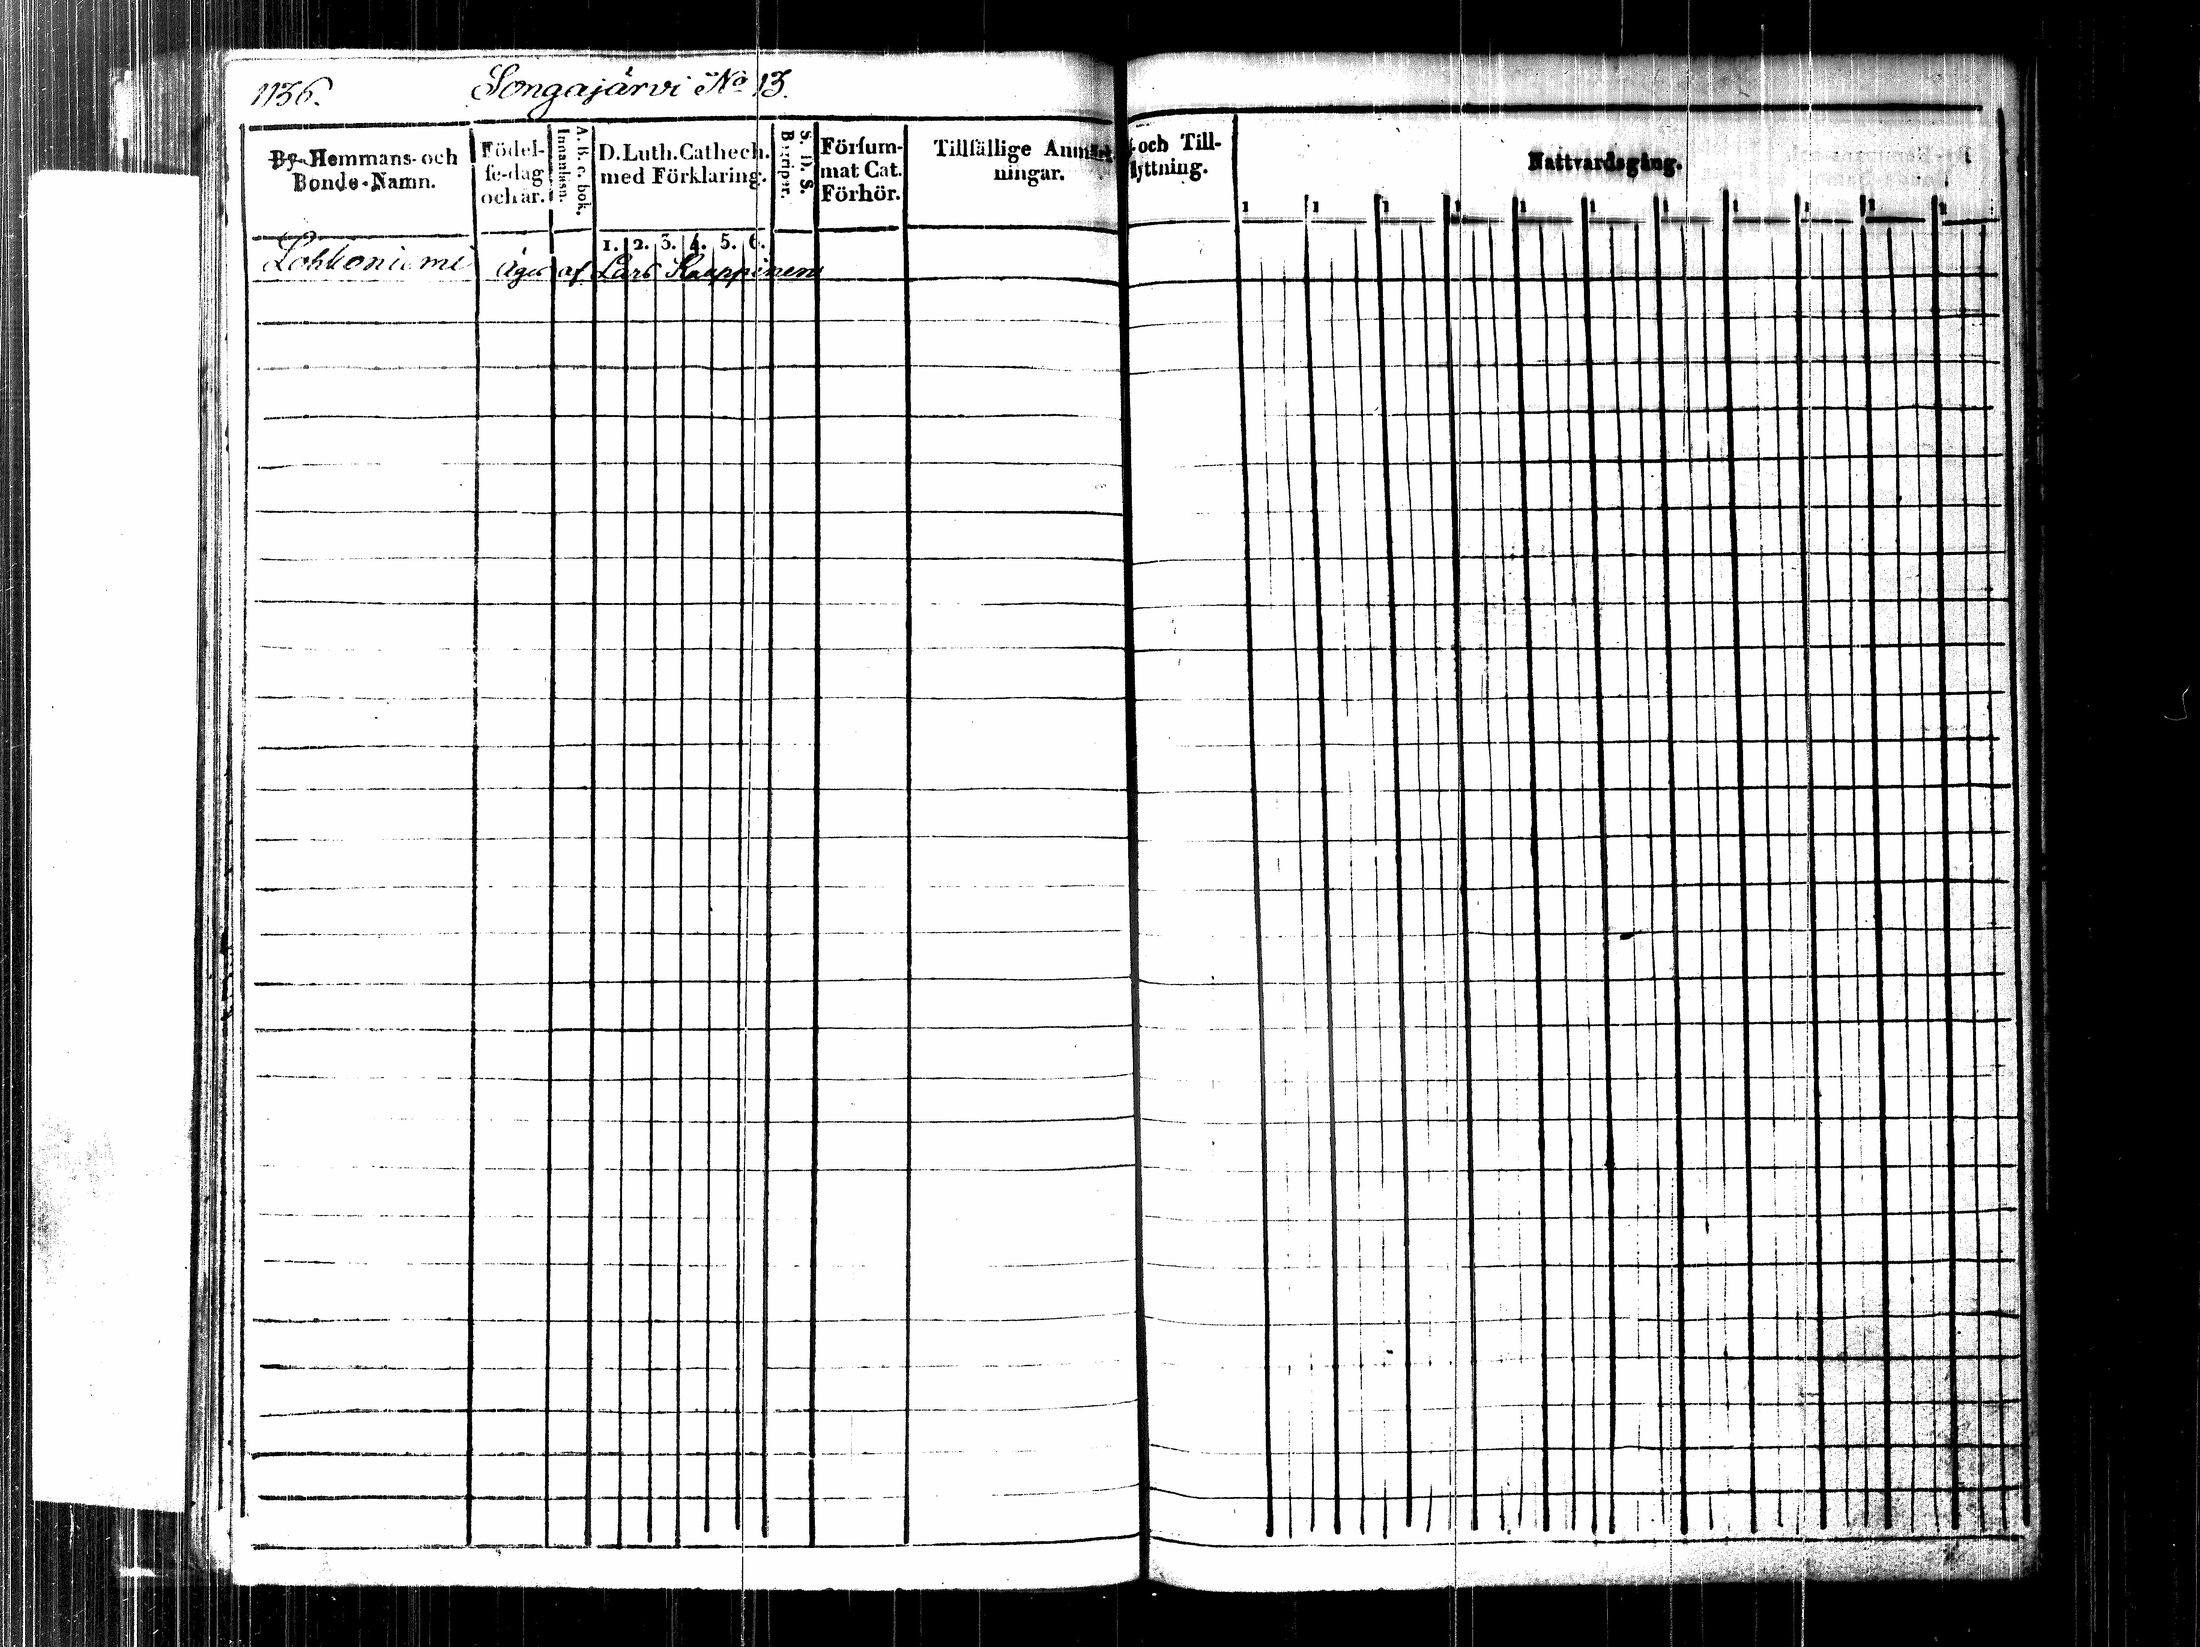 1136. Songajärvi No 13.
By- Hemmans- och Bonde-Namn.
Födel-
se-dag
och år.
A. B. c. bok.
Innanläsn.
D. Luth. Cathech.
med Förklaring.
1. 2. 3. 4. 5. 6.
S. D. S.
Begriper.
Försum-
mat Cat.
Förhör.
Tillfällige Anmärk-
ningar.
och Till-
flyttning.
Nattvardsgång.
1 1 1 1 1 1 1 1 1 1 1
Lohkoniemi äges af Lars Kauppinen